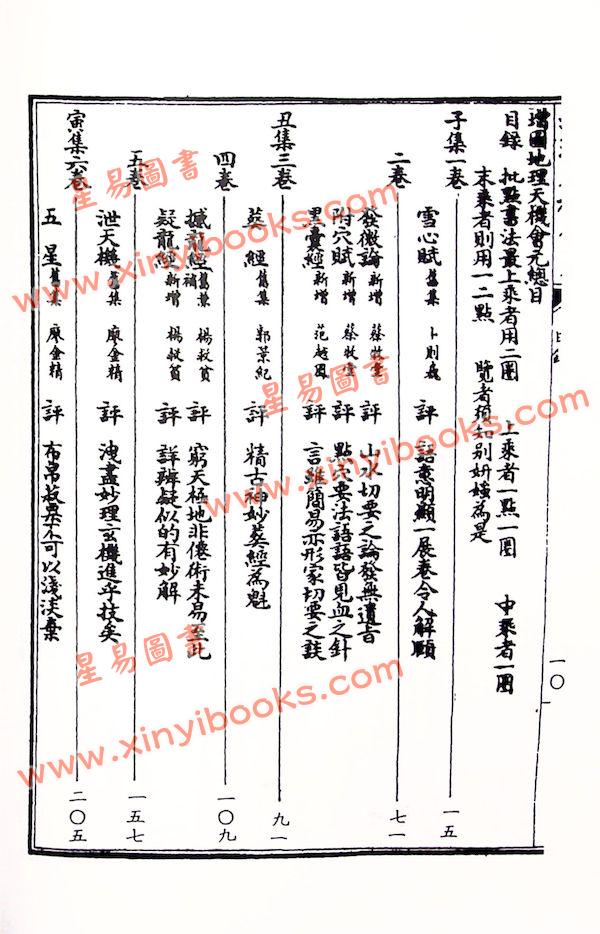 增圖地理天機會元總目
目錄 批點書法最上乘者用二圈 上乘者一點一圈 中乘者一圈
末乘者則用一二點 覽者須知別妍媸為是
子集一卷 一五
雪心賦 舊集 卜則巍 評 語意明顯一展卷令人解頤
二卷 七一
發微論 新增 蔡牧堂 評 山水切要之論發無遺旨
附穴賦 新增 蔡牧堂 評 點穴要法語語皆見血之針
黑囊經 新增 范越鳳 評 言雖簡易亦形家切要之談
丑集三卷 九一
葬經 舊集 郭景純 評 精古神妙葬經為魁
四卷 一〇九
撼龍經 舊集補 楊救貧 評 窮天極地非僊術未易至此
疑龍經 新增 楊救貧 評 詳辨疑似的有妙解
五卷 一五七
泄天機 舊集 廖金精 評 洩盡妙理玄機進乎技矣
寅集六卷 二〇五
五星 舊集 廖金精 評 布帛菽粟不可以淺淡棄
一〇
星易圖書
www.xinyibooks.com
星易圖書
www.xinyibooks.com
星易圖書
www.xinyibooks.com